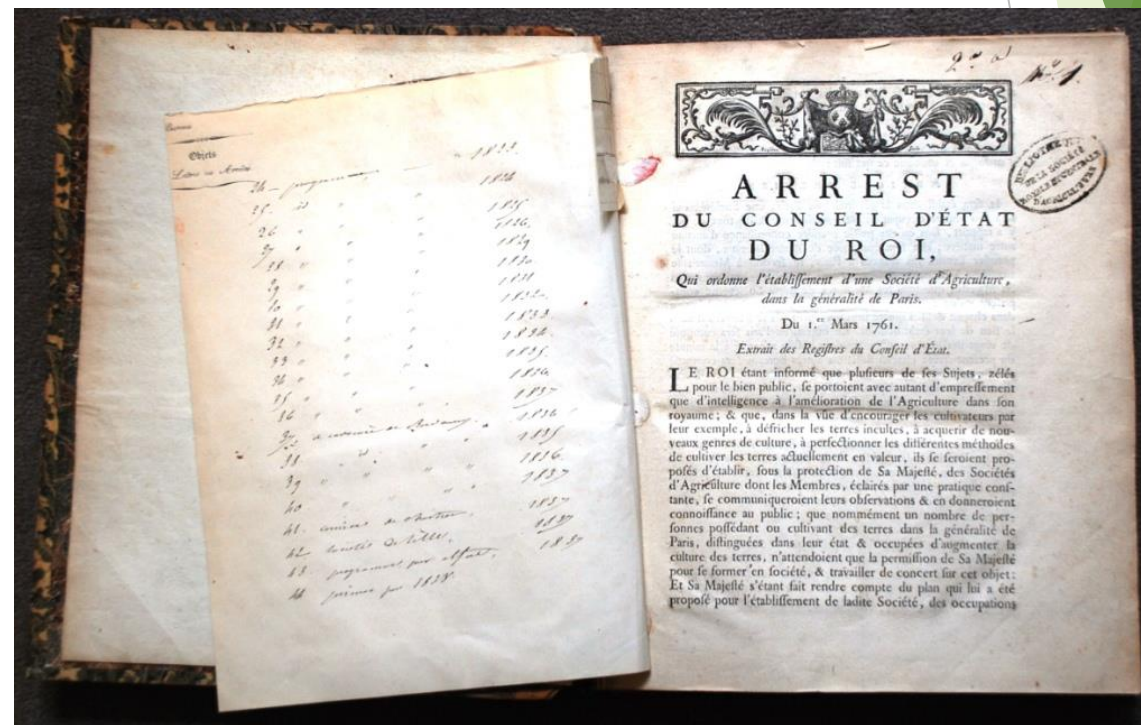 Objets
24 - programmes - " 1823
25. id " 1824
26 " " 1825
27 " " 1826
28 " " 1829
29 " " 1830
30 " " 1831
31 " " 1832
32 " " 1833
33 " " 1834
34 " " 1835
35 " " 1836
36 " " 1837
1836
38 " id " " 1835
39 " " " 1836
40 " " " 1837
41. 1837
42. 1837
43. programmes par 1837
44 primes par 1838
2.
N.º 1.
BIBLIOTHE
DE LA SOCIÉTÉ
ROYALE ET CENTRALE
D'AGRICULTURE
ARREST
DU CONSEIL D'ÉTAT
DU ROI,
Qui ordonne l'établiſſement d'une Société d'Agriculture,
dans la généralité de Paris.
Du 1.er Mars 1761.
Extrait des Regiſtres du Conſeil d'État.
LE ROI étant informé que pluſieurs de ſes Sujets, zélés
pour le bien public, ſe portoient avec autant d'empreſſement
que d'intelligence à l'amélioration de l'Agriculture dans ſon
royaume; & que, dans la vûe d'encourager les cultivateurs par
leur exemple, à défricher les terres incultes, à acquerir de nou-
veaux genres de culture, à perfectionner les différentes méthodes
de cultiver les terres actuellement en valeur, ils ſe ſeroient pro-
poſés d'établir, ſous la protection de Sa Majeſté, des Sociétés
d'Agriculture dont les Membres, éclairés par une pratique conſ-
tante, ſe communiqueroient leurs obſervations & en donneroient
connoiſſance au public; que nommément un nombre de per-
ſonnes poſſédant ou cultivant des terres dans la généralité de
Paris, diſtinguées dans leur état & occupées d'augmenter la
culture des terres, n'attendoient que la permiſſion de Sa Majeſté
pour ſe former en ſociété, & travailler de concert ſur cet objet:
Et Sa Majeſté s'étant fait rendre compte du plan qui lui a été
propoſé pour l'établiſſement de ladite Société, des occupations